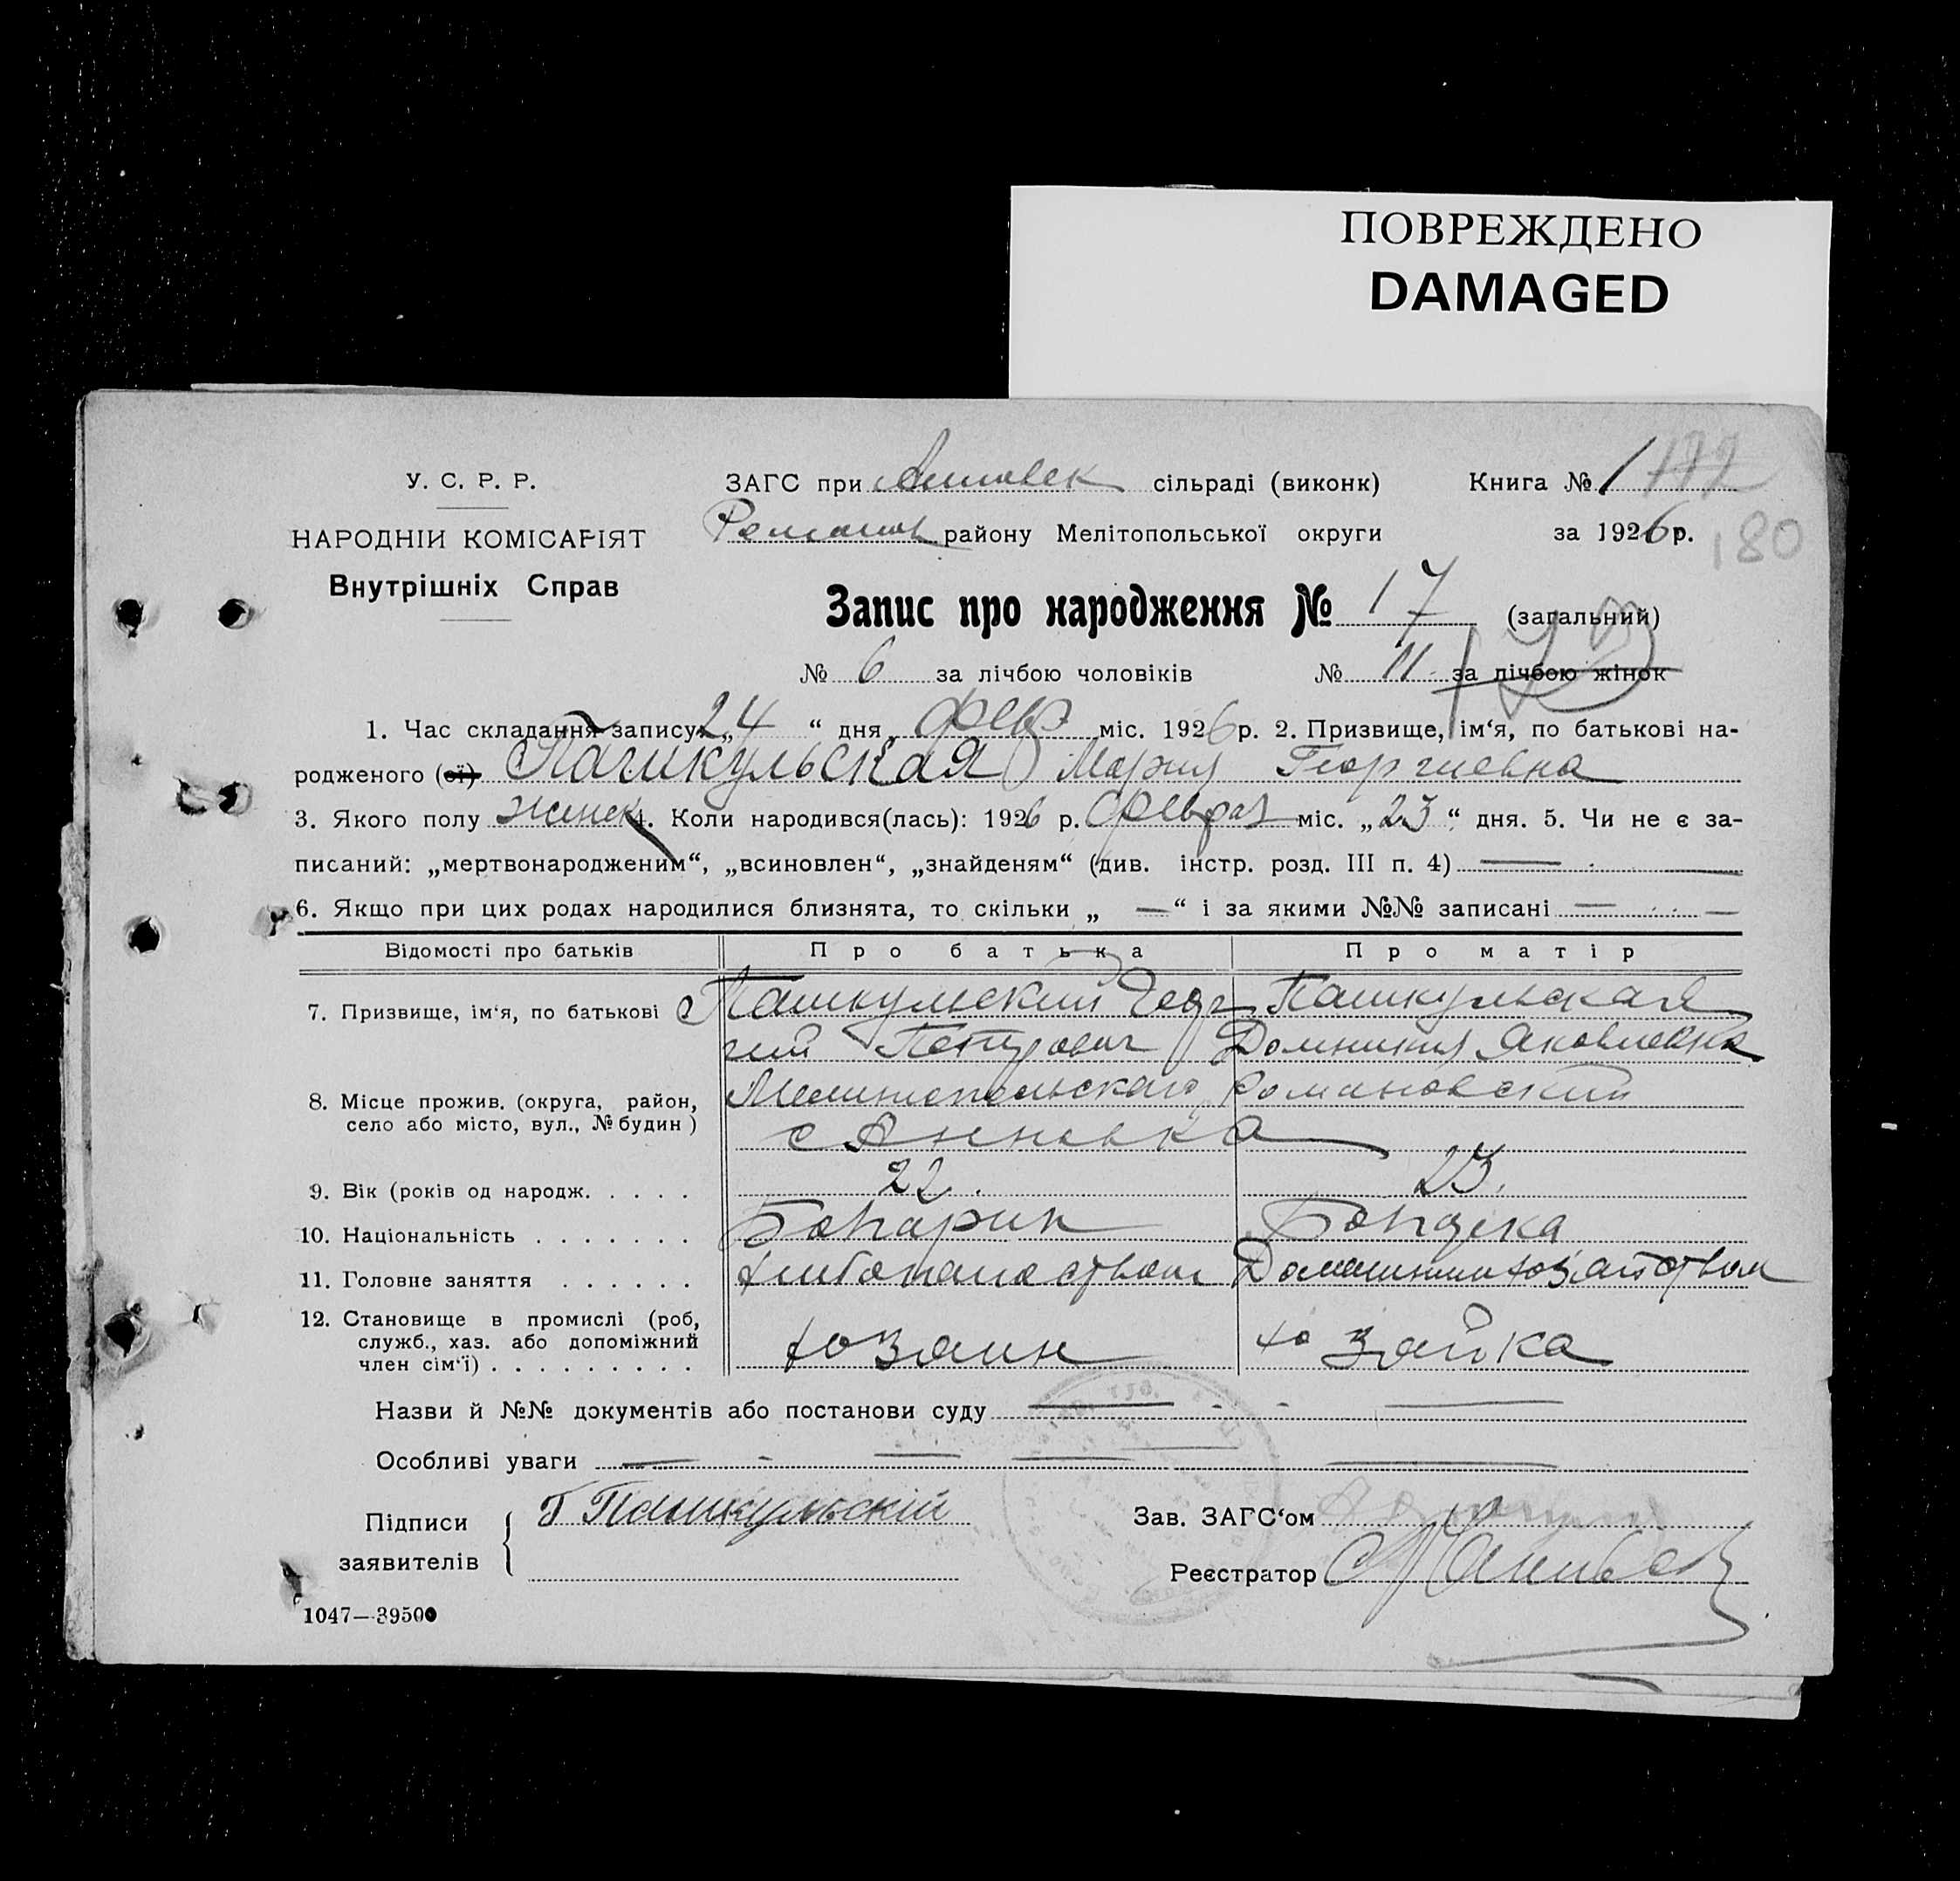 ПОВРЕЖДЕНО
DAMAGED
У. С. Р. Р.
НАРОДНІЙ КОМІСАРІЯТ
Внутрішніх Справ
ЗАГС при Анновск сільраді (виконк) Книга № 1 172
Романов району Мелітопольської округи за 1926 р. 180
Запис про народження № 17 (загальний)
№ 6 за лічбою чоловіків № 11 за лічбою жінок
1. Час складання запису „24 “ дня февр міс. 1926 р. 2. Призвище, ім‘я, по батькові на-
родженого (ої) Пашкульская Мария Георгиевна
3. Якого полу женск 4. Коли народився(лась): 1926 р. феврал міс. „23 “ дня. 5. Чи не є за-
писаний: „мертвонародженим“, „всиновлен“, „знайденям“ (див. інстр. розд. III п. 4) —
6. Якщо при цих родах народилися близнята, то скільки „ —“ і за якими №№ записані — —
Відомості про батьків Про батька Про матір
7. Призвище, ім‘я, по батькові Пашкульский Геор Пашкульская
гий Петрович Домникия Яковлевна
8. Місце прожив. (округа, район, Мелитопольскаго Романовский
село або місто, вул., № будин) с Анновка
9. Вік (років од народж. . . . . 22. 23.
10. Національність . . . . . . . Болгарин Болгарка
11. Головне заняття . . . . . . хлебопашеством Домашним хозяйством
12. Становище в промислі (роб,
служб., хаз. або допоміжний хозяин хозяйка
член сім‘ї) . . . . . . . . .
Назви й №№ документів або постанови суду —
Особливі уваги —
Підписи Г Пашкульскій Зав. ЗАГС‘ом
заявителів Реєстратор
1047—39500